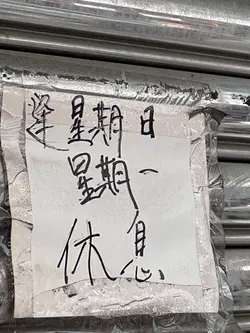 逢星期日
星期一
休息